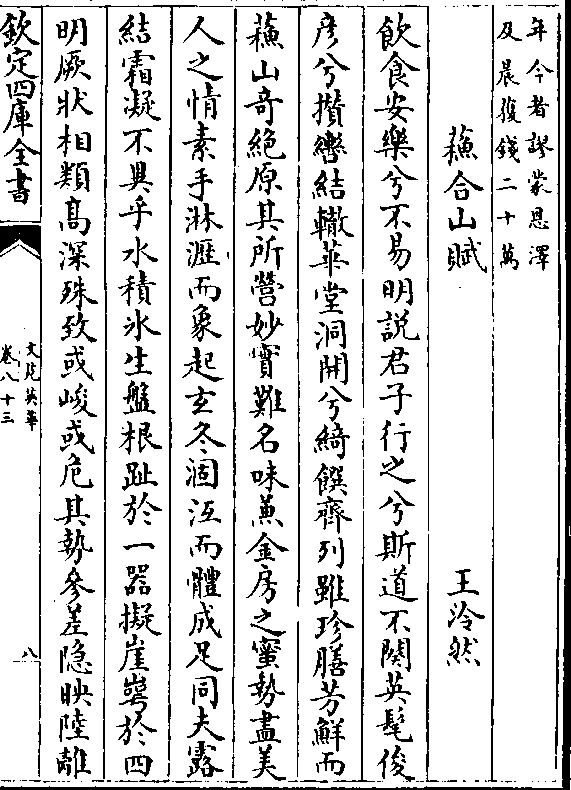 年今者謬蒙恩澤
及晨復錢二十萬
蘓合山賦　王泠然
飲食安樂兮不易明說君子行之兮斯道不闋英髦俊
彦兮攢轡結轍華堂洞開兮綺饌齊列雖珍膳芳鮮而
蘓山奇絶原其所營妙實難名味兼金房之蜜勢盡美
人之情素手淋瀝而象起玄冬涸沍而體成足同夫露
結霜凝不異乎水積氷生盤根趾於一器擬崖崿於四
明厥狀相類高深殊致或峻或危其勢參差隐映陸離
欽定四庫全書
文苑英華
卷八十三
八